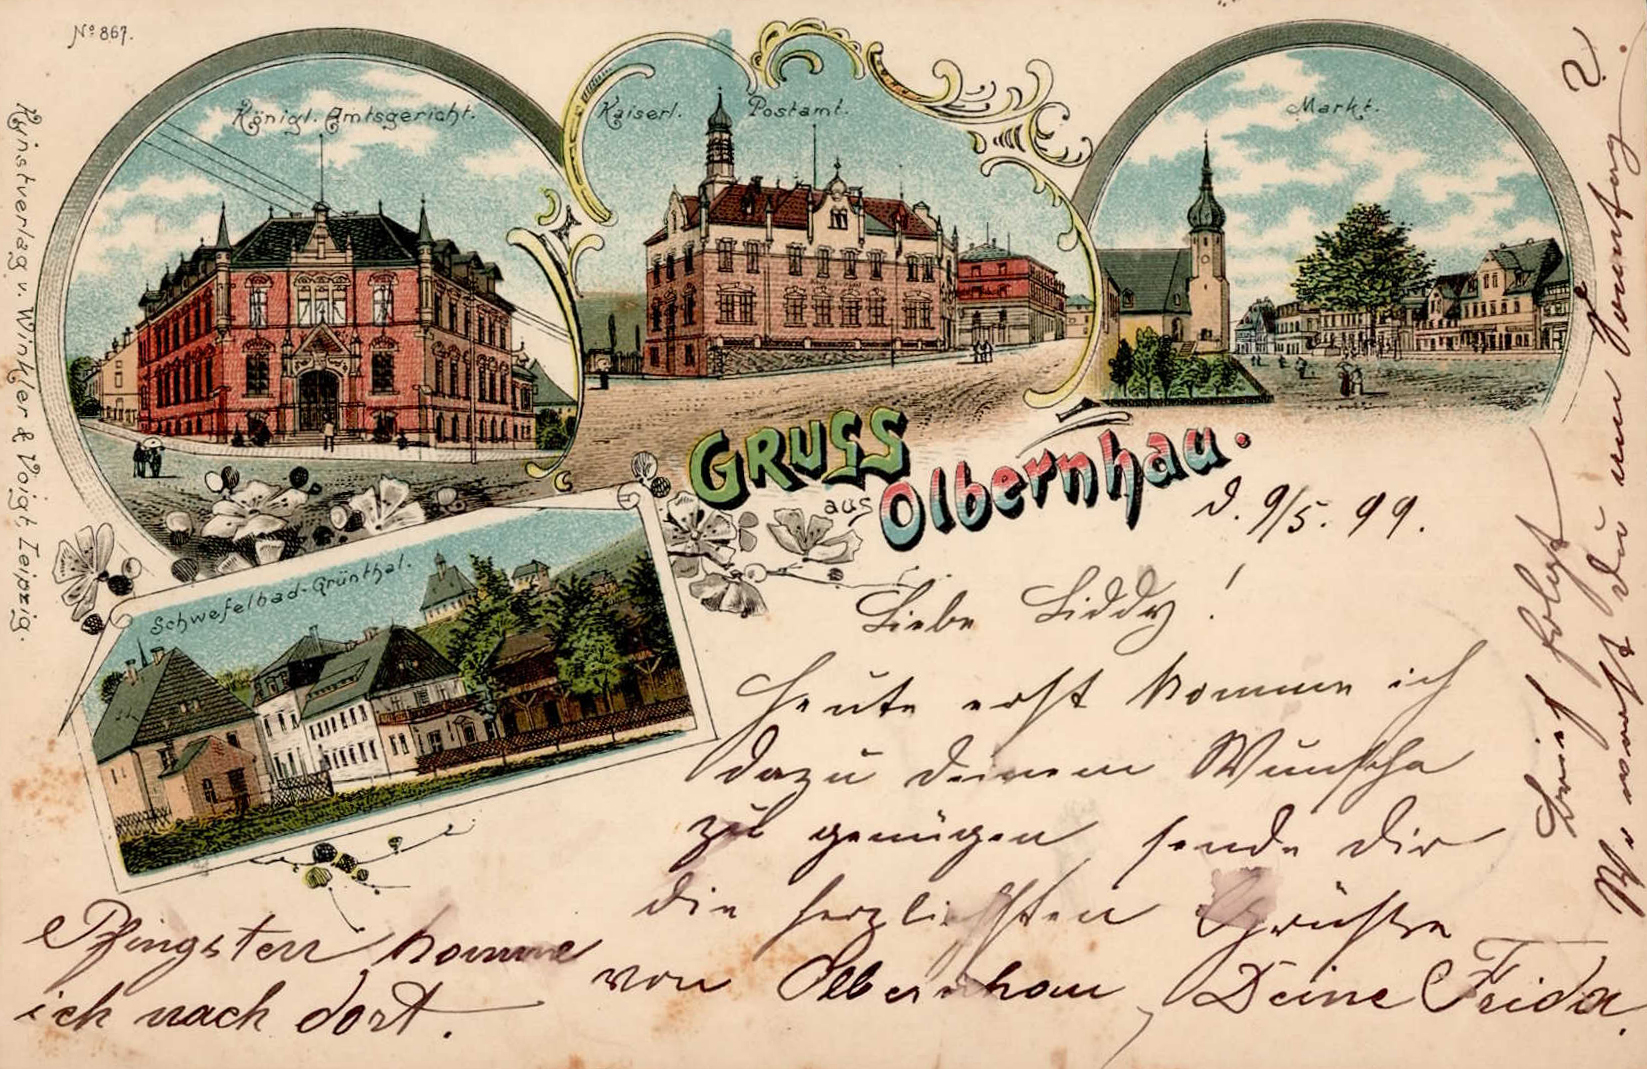 No 867.
Königl. Amtsgericht.
Kaiserl. Postamt.
Markt.
Kunstverlag v. Winkler & Voigt Leipzig.
Schwefelbad-Grünthal.
GRUSS
aus Olbernhau.
d. 9/5. 99.
Liebe Liddy!
Heute erst komme ich
dazu deinem Wunsche
zu genügen sende dir
die herzlichsten Grüsse
von Olbernhau, Deine Frida.
Pfingsten komme
ich nach dort.
Brief folgt
Wo warst du am Sonntag
?